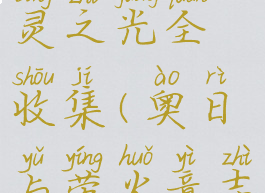 líng zhī guāng quán
灵之光全
shōu jí ào rì
收集(奥日
yǔ yíng huǒ yì zhì
与萤火意志